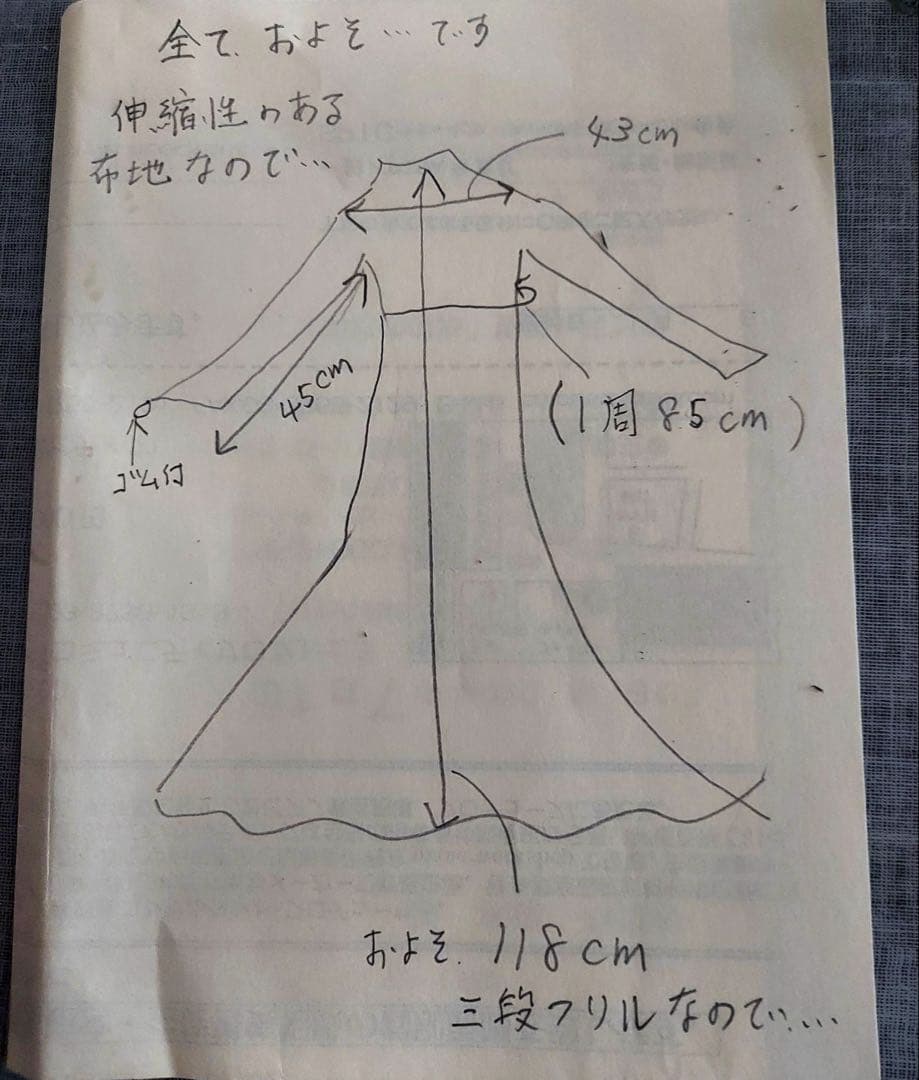 全て およそ…です
伸縮性のある
布地なので…
43cm
45cm
(1周85cm)
ゴム付
およそ 118cm
三段フリルなので…